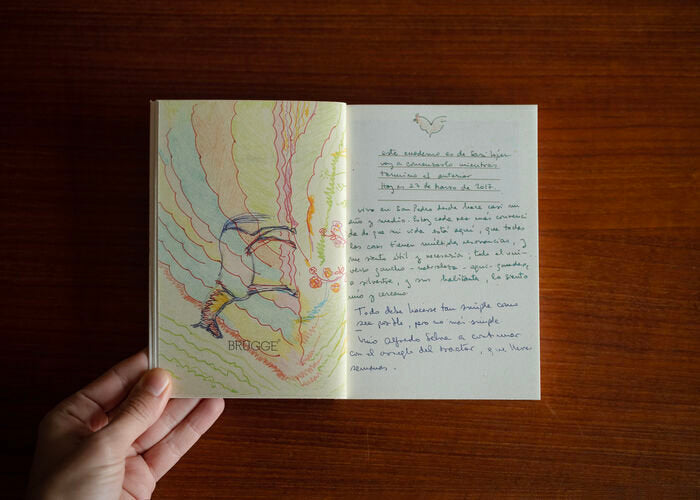 BRUGGE
este cuaderno es de
voy a comenzarlo mientras
termino el anterior
hoy es 27 de marzo de 2017.
vivo en San Pedro desde hace casi un
año y medio. Estoy cada vez más convenci
da de que mi vida está aquí, que todas
las cosas tienen múltiples resonancias, y
me siento útil y necesaria; todo el uni-
verso gaucho - naturaleza - agri-ganadero,
silvestre, y sus habitantes, lo siento
mío y cercano.
Todo debe hacerse tan simple como
sea posible, pero no más simple
Vino Alfredo Selva a continuar
con el arreglo del tractor, que lleva
semanas.